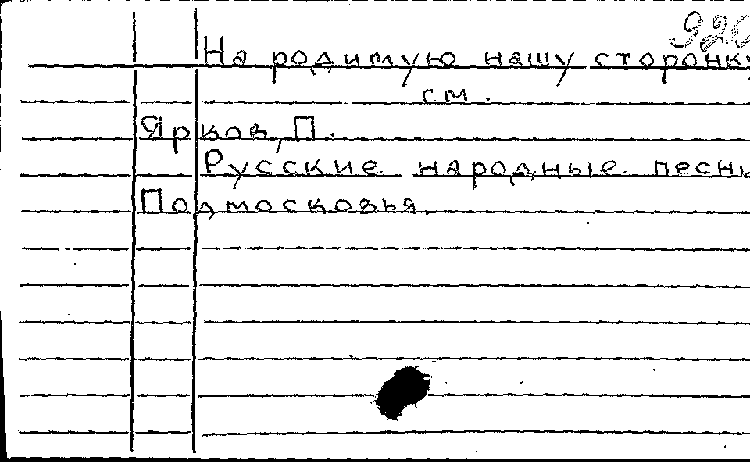 920
На родимую нашу сторонку
см.
Ярков, П.
Русские народные песни
Подмосковья